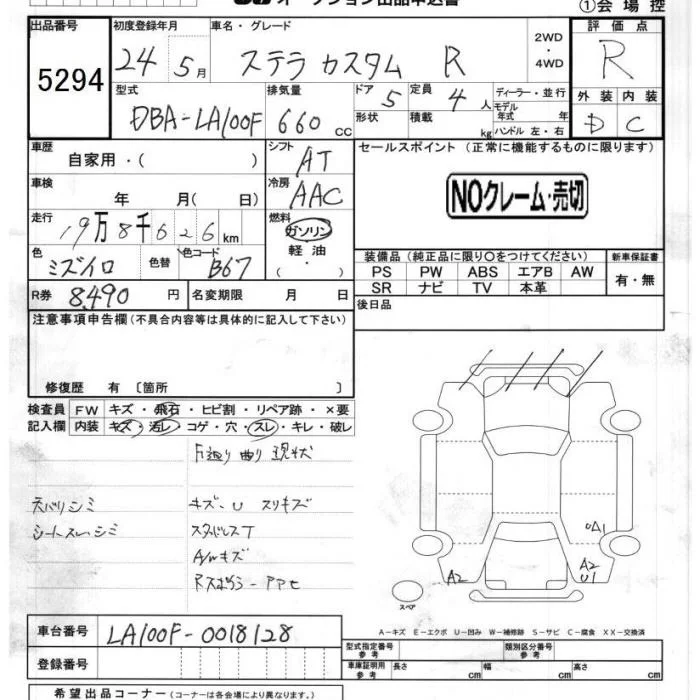 オークション出品申込書
①会場控
出品番号 初度登録年月 車名・グレード 評価点
5294 24 5月 ステラ カスタム R 2WD・4WD R
型式 排気量 ドア 定員 ディーラー・並行 外装 内装
DBA-LA100F 660cc 5 4人 モデル年式 年 D C
形状 積載 kg ハンドル 左・右
車歴 シフト セールスポイント (正常に機能するものに限ります)
自家用・( ) AT
車検 冷房 NOクレーム・売切
年 月( 日) AAC
走行 燃料
19万8千626km ガソリン
軽・油
( )
色 色替 色コード 装備品 (純正品に限り〇をつけてください) 新車保証書
ミズイロ B67 PS PW ABS エアB AW 有・無
SR ナビ TV 本革
R券 8490円 名変期限 月 日 後日品
注意事項申告欄 (不具合内容等は具体的に記入して下さい)
修復歴 有 〔箇所 〕
検査員 FW キズ・飛石・ヒビ割・リペア跡・×要
記入欄 内装 キズ・汚レ・コゲ・穴・スレ・キレ・破レ
F廻り曲り 現状
天バリシミ キズ・U スリキズ
シートスレ・シミ スタッドレスT
A/wキズ
A1
A2
A2
U1
スペア
A-キズ E-エクボ U-凹み W-補修跡 S-サビ C-腐食 XX-交換済
車台番号 LA100F-0018128
型式指定番号 参考 類別区分番号
登録番号 車庫証明用 参考 長さ cm 幅 cm 高さ cm
希望出品コーナー (コーナーは各会場により異なります。)